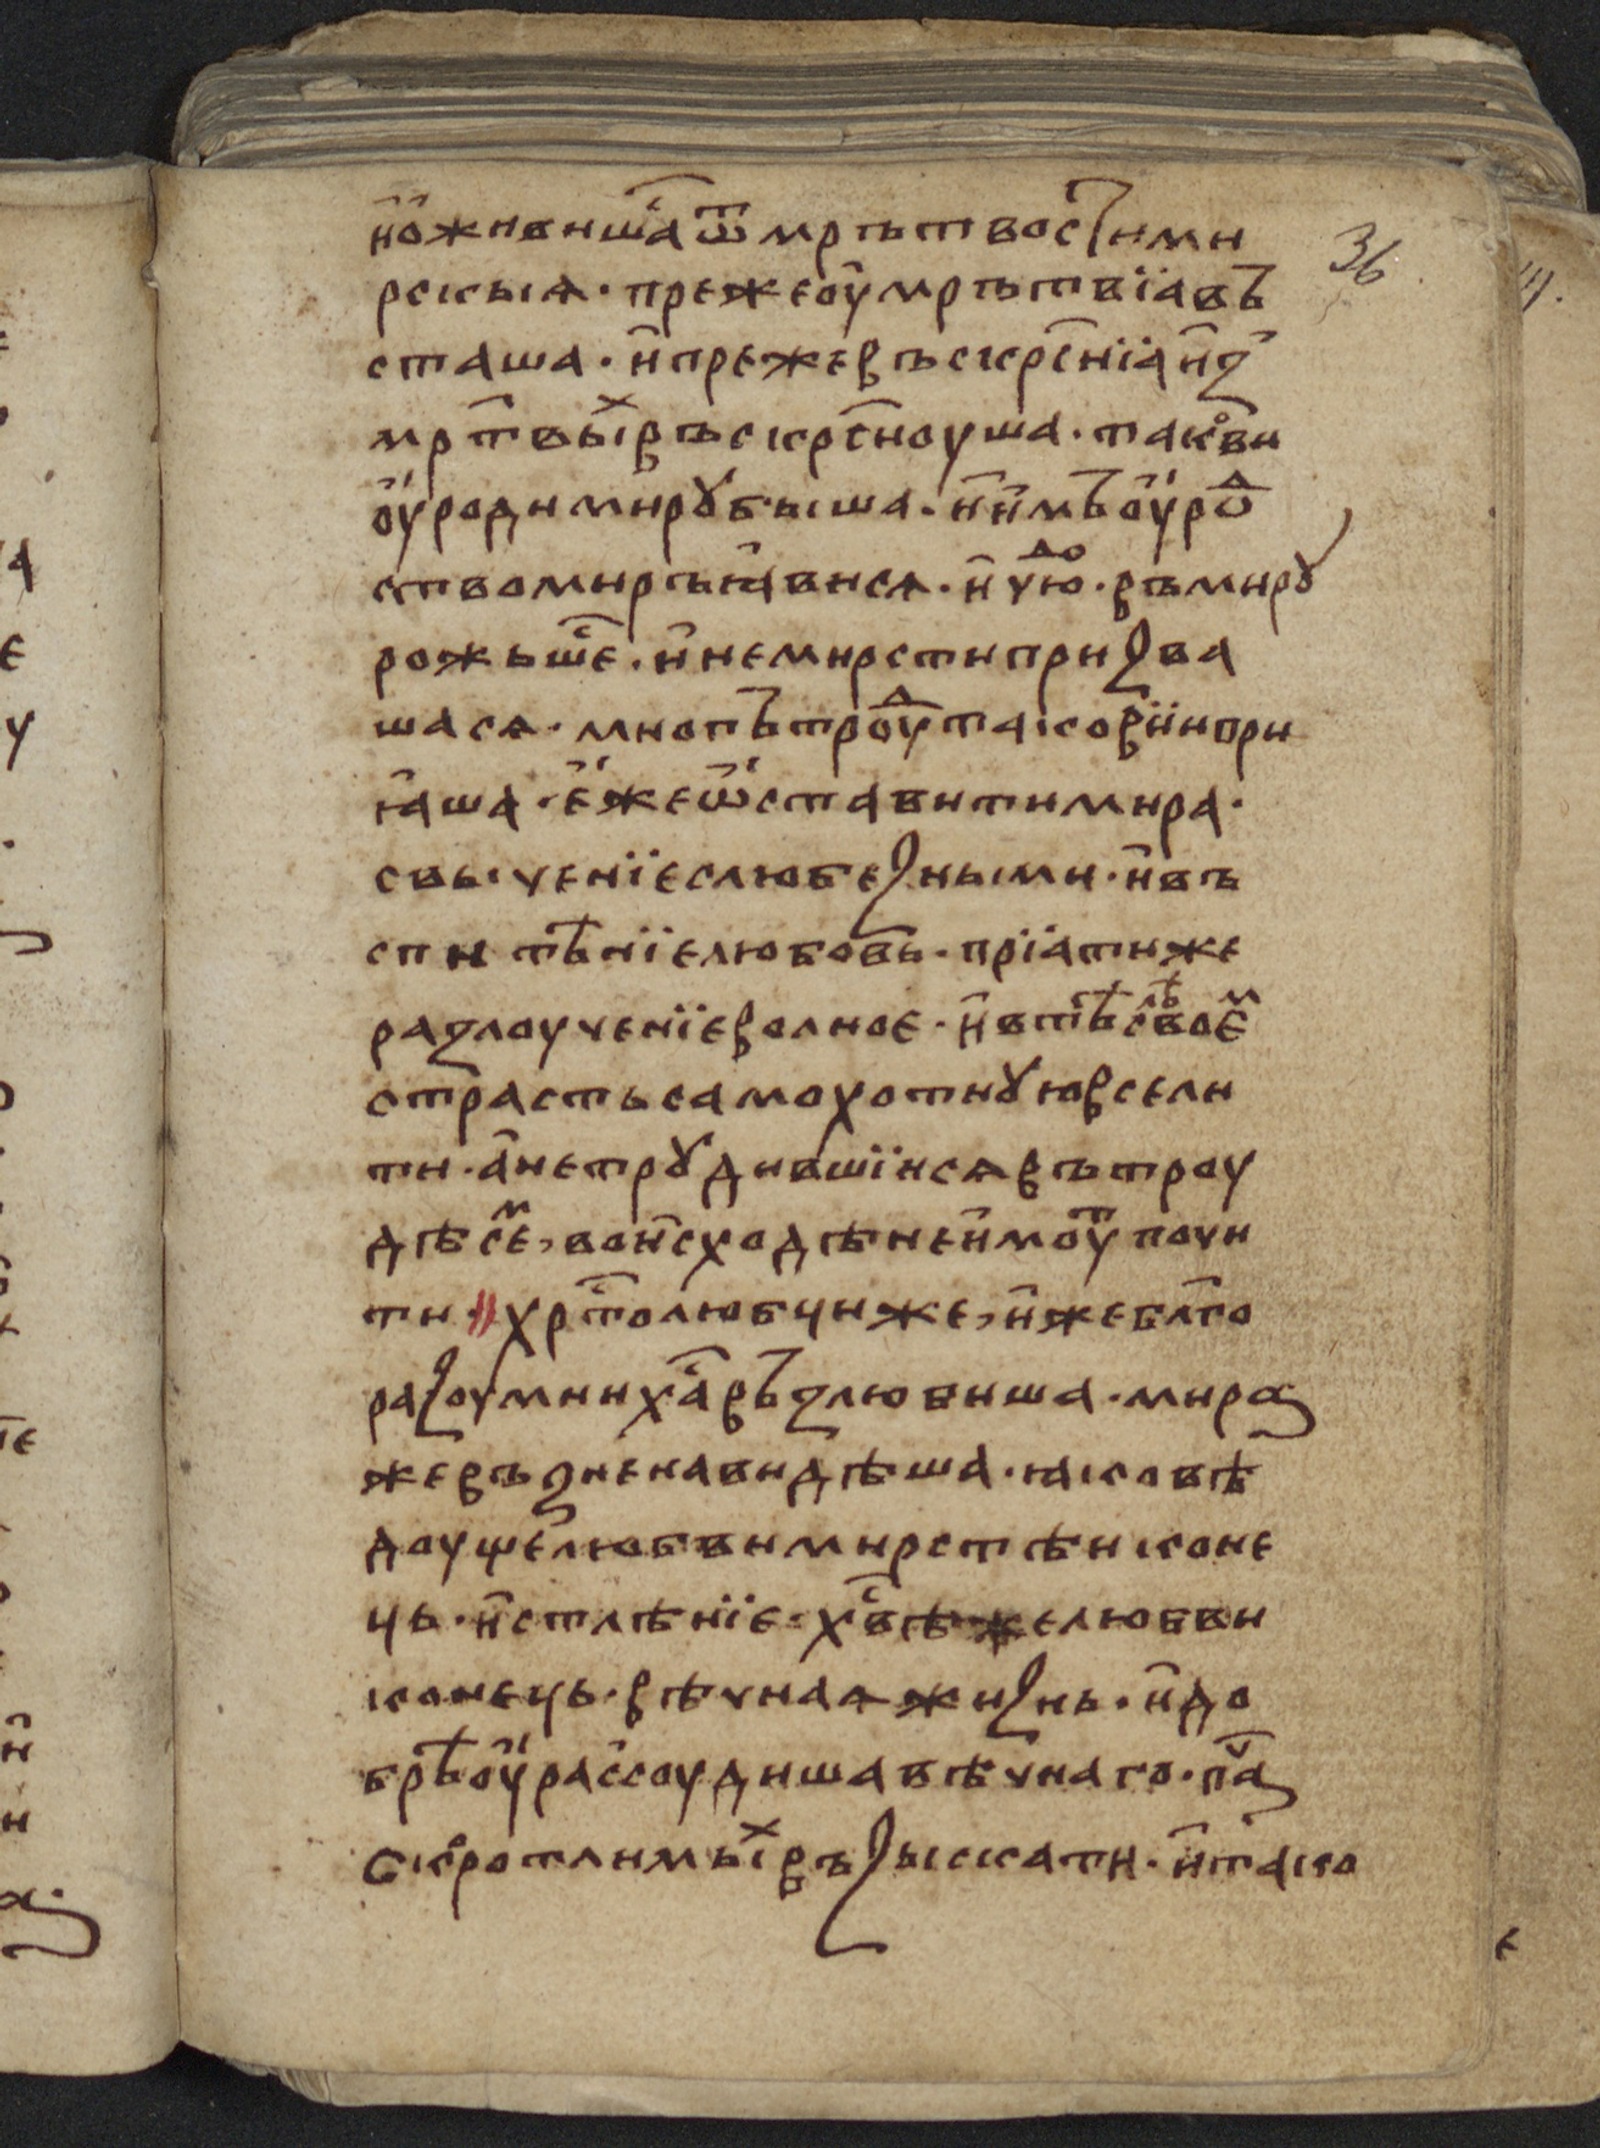 и҆ожившаⷭ҇ ѿ мрътвости ми
рскыѧ · преже оумрътвїа въ
сташа · и҆ преже въскрⷭ҇нїа из
мрⷮвыⷯ въскрⷭ҇ноуша · такⷪви
оуроди мирꙋ быша · и҆ и҆мъ оурѡⷣ
ство миръ ꙗ҆висѧ · и҆ чюⷣⷪ · въ мирꙋ
рожьшеⷭ҇ · и҆ не мирсти призва
шасѧ · мнопътроуⷣ тако вїи при
ꙗ҆ша · є҆же ѡ҆ставити мира ·
свычениїе слюбезными · и҆ въ
спитѣнїе любовь · прїати же
разлоученїе волное · и҆ в тѣлѣⷭ҇ своеⷨ
страсть самохотнꙋю всели
ти · а҆ не трꙋдившїисѧ въ троу
дѣ сеⷨ, во и҆сходѣ не и҆моуⷮ почи
ти · хрⷭ҇толюбци же, и҆же блг҃о
разоумни хаⷭ҇ въ злювиша · мира
же възненавидѣша · ꙗко вѣ
доуще любви мирстѣи коне
ць · и҆стлѣнїе · хвⷭ҇ѣ же любви
конець · вѣчнаѧ жизнь · и҆ до
брѣ оу҆ рассоудиша вѣчнаго · паⷱ҇
скоротлимыⷯ възыскати · и҆ тако
36